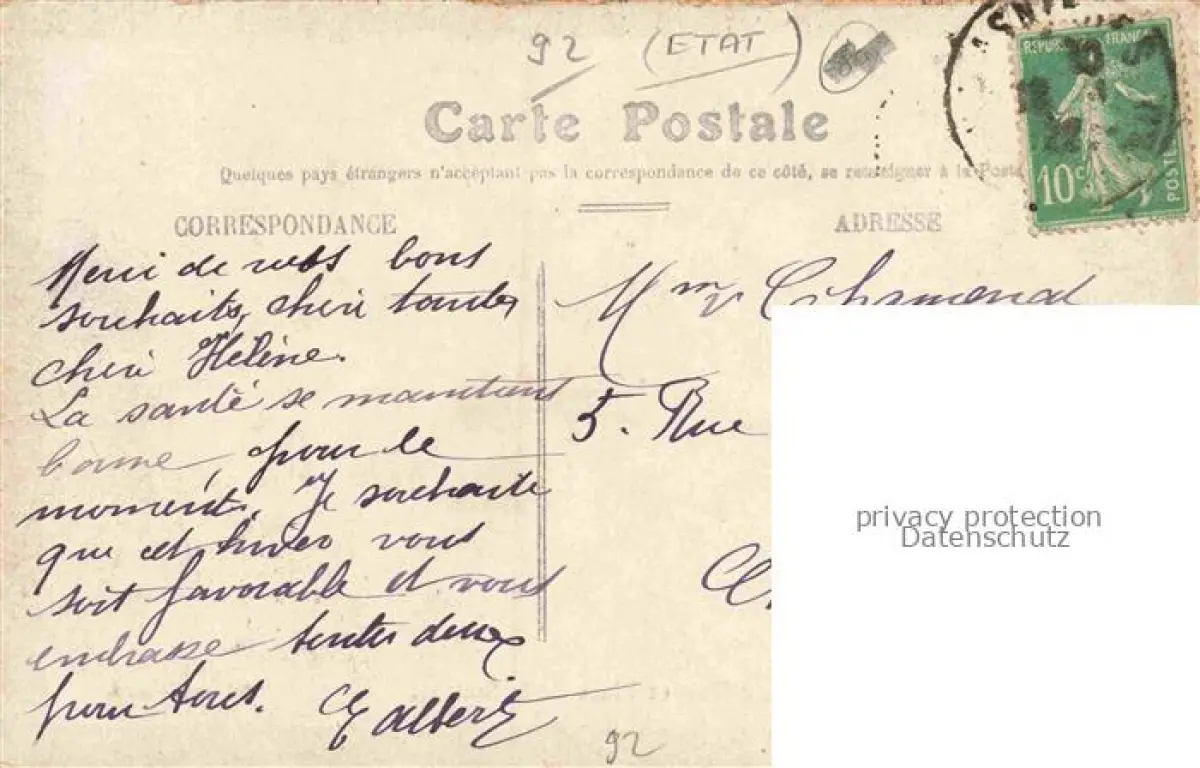 92 (ETAT)
ASNI
REPUB FRANÇAI
10c
POSTES
Carte Postale
Quelques pays étrangers n'acceptant pas la correspondance de ce côté, se renseigner à la Poste
CORRESPONDANCE
ADRESSE
Merci de vos bons
souhaits, chère tante,
chère Hélène.
La santé se maintient
bonne, pour le
moment. Je souhaite
que cet hiver vous
soit favorable et vous
embrasse toutes deux
pour tous. Albert
Mme
5. Rue
privacy protection
Datenschutz
92